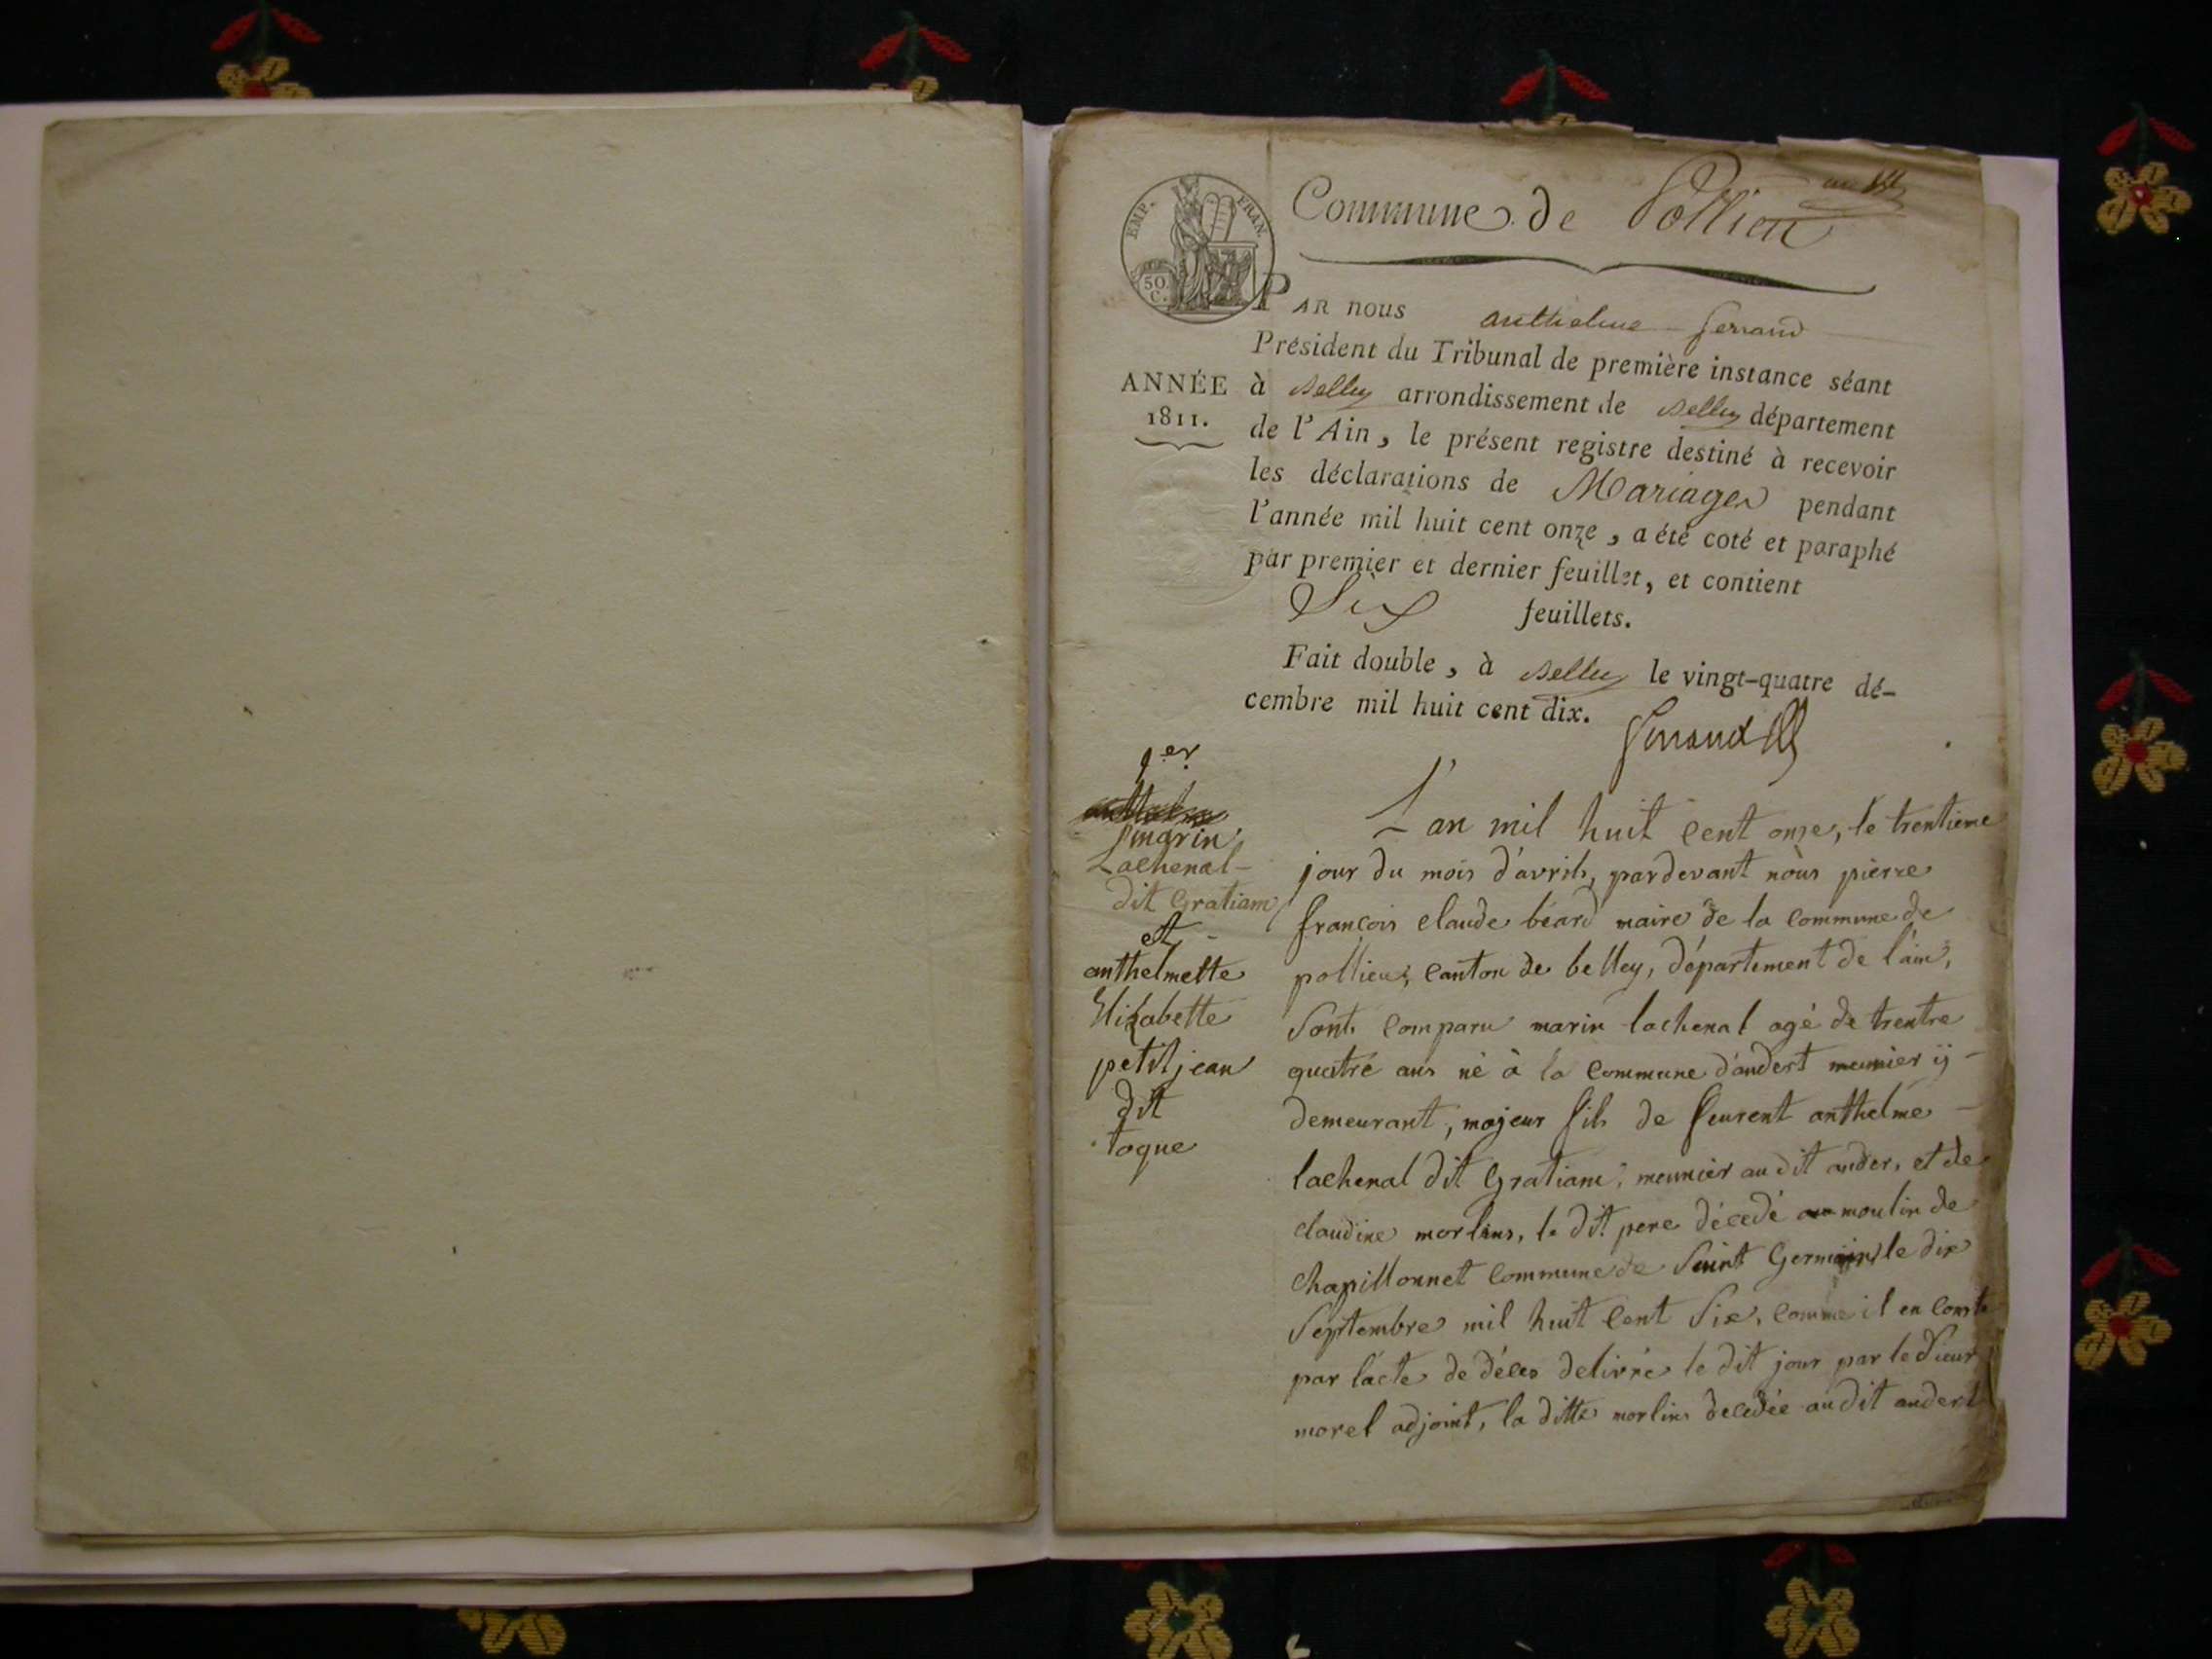 EMP. FRAN.
50
C.
Commune de Pollieu
PAR nous anthelme ferrand
Président du Tribunal de première instance séant
ANNÉE
1811.
à Belley arrondissement de Belley département
de l'Ain, le présent registre destiné à recevoir
les déclarations de Mariages pendant
l'année mil huit cent onze, a été coté et paraphé
par premier et dernier feuillet, et contient
Six feuillets.
Fait double, à Belley le vingt-quatre dé-
cembre mil huit cent dix.
1.er
marin
Lachenal
dit Gratiam
et
anthelmette
Elizabette
petit jean
dit
toque
L'an mil huit cent onze, le trentieme
jour du mois d'avril, pardevant nous pierre
françois claude béard maire de la commune de
pollieu, canton de belley, département de l'ain,
Sont comparu marin lachenal agé de trentre
quatre ans né à la commune d'andert meunier ÿ
demeurant, majeur fils de feurent anthelme
lachenal dit Gratiam, meunier au dit ander, et de
claudine morlins, le dit pere décedé au moulin de
Chapillonnet commune de Saint Germain le dix
Septembre mil huit cent Six, comme il en conste
par l'acte de déces delivré le dit jour par le Sieur
morel adjoint, la ditte morlins decedée au dit andert